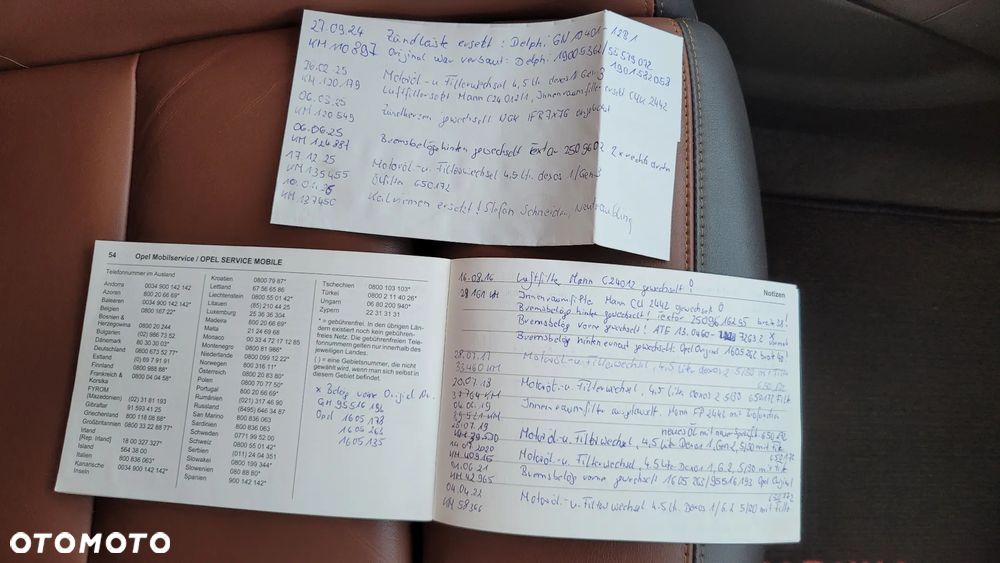 27.09.24 Zündleiste ersetzt : Delphi GN 10401-12B1
KM 110897 Original war verbaut: Delphi 19005362/55579072
1901582053
26.02.25 Motoröl-u Filterwechsel 4,5 Ltr. dexos 1 Gen 3
KM 120,179 Luftfilter ersetzt Mann C24012/1, Innenraumfilter ersetzt CUK 2442
06.03.25 Zündkerzen gewechselt NGK IFR7X7G
KM 120549
06.06.25 Bremsbeläge hinten gewechselt Textar 2509602 2 x rechts
KM 124887
17.12.25 Motoröl-u. Filterwechsel 4,5 Ltr. dexos 1/Gen 3
KM 135455 Ölfilter 650172
KM 137450 Keilriemen ersetzt! Stefan Schneider, Neutraubling
54 Opel Mobilservice / OPEL SERVICE MOBILE
Telefonnummer im Ausland
Andorra 0034 900 142 142
Azoren 800 20 66 69*
Balearen 0034 900 142 142*
Belgien 0800 167 22*
Bosnien &
Herzegowina 0800 20 244
Bulgarien (02) 986 73 52
Dänemark 80 30 30 03*
Deutschland 0800 673 52 77*
Estland (0) 69 7 91 91
Finnland 0800 988 88*
Frankreich & 0800 04 04 58*
Korsika
FYROM
(Mazedonien) (02) 31 81 193
Gibraltar 91 593 41 25
Griechenland 800 118 08 88*
Großbritannien 0800 33 22 88 77*
Irland
[Rep. Irland] 18 00 327 327*
Island 564 38 00
Italien 800 836 063*
Kanarische 0034 900 142 142*
Inseln
Kroatien 0800 79 87*
Lettland 67 56 65 86
Liechtenstein 0800 55 01 42*
Litauen (85) 210 44 25
Luxemburg 25 36 36 304
Madeira 800 20 66 69*
Malta 21 24 69 68
Monaco 00 33 4 72 17 12 85
Montenegro 0800 81 986*
Niederlande 0800 099 12 22*
Norwegen 800 316 11*
Österreich 0800 20 83 80*
Polen 0800 70 77 50*
Portugal 800 20 66 69*
Rumänien (021) 317 46 90
Russland (8495) 646 34 87
San Marino 800 836 063
Sardinien 800 836 063
Schweden 0771 99 52 00
Schweiz 0800 55 01 42*
Serbien (011) 24 04 351
Slowakei 0800 199 344*
Slowenien 080 88 80*
Spanien 900 142 142*
Tschechien 0800 103 103*
Türkei 0800 2 11 40 26*
Ungarn 06 80 200 940*
Zypern 22 31 31 31
* = gebührenfrei. In den übrigen Län-
dern existiert noch kein gebühren-
freies Netz. Die gebührenfreie Tele-
fonnummern gelten nur innerhalb des
jeweiligen Landes.
( ) = eine Gebietsnummer, die nicht
gewählt wird, wenn man sich selbst in
diesem Gebiet befindet.
x Beläg vorne Original Nr.
GM 95516194
Opel 1605178
1605263
1605135
Notizen
16.08.16 Luftfilter Mann C24012 gewechselt !
29161 KM Innenraumfilter Mann CU 2442 gewechselt
Bremsbeläge hinten gewechselt! Textar 25096 162 95
Bremsbeläge vorne gewechselt! ATE 13.0460- 7263.2
Bremsbeläge hinten erneut gewechselt Opel Original 1605262
28.07.17 Motoröl-u. Filterwechsel, 4,5 Liter dexos 2 5/30 mit Filter
33460 KM 650172
20.07.18 Motoröl-u. Filterwechsel, 4,5 Liter Dexos 2 5/30 650172 Filt
37764 KM
04.06.19 Innenraumfilter Mann FP 2442
39521 KM
KM 39530 Motoröl-u. Filterwechsel, 4,5 Liter Dexos 1, Gen 2, 5/30 mit Filt
650172
14.07.2020 Motoröl-u. Filterwechsel, 4,5 Liter Dexos 1, G.2, 5/30 mit Filt
KM 40915
01.06.21 Bremsbeläg vorne gewechselt 1605263/95516193 Opel Original
KM 42965
650172
04.04.22 Motoröl-u. Filterwechsel 4,5 Ltr. Dexos 1/G.2 5/30 mit Filt
KM 58366
OTOMOTO